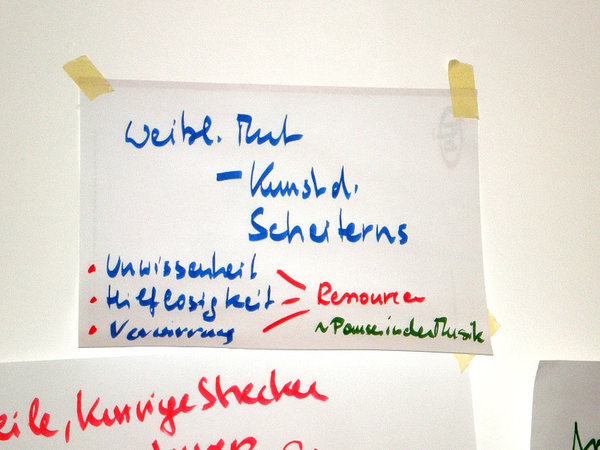 Weibl. Mut
– Kunst d.
Scheiterns
• Unwissenheit
• Hilflosigkeit
• Verwirrung
Ressourcen
~ Pause in der Musik
eile, kurvige Strecke